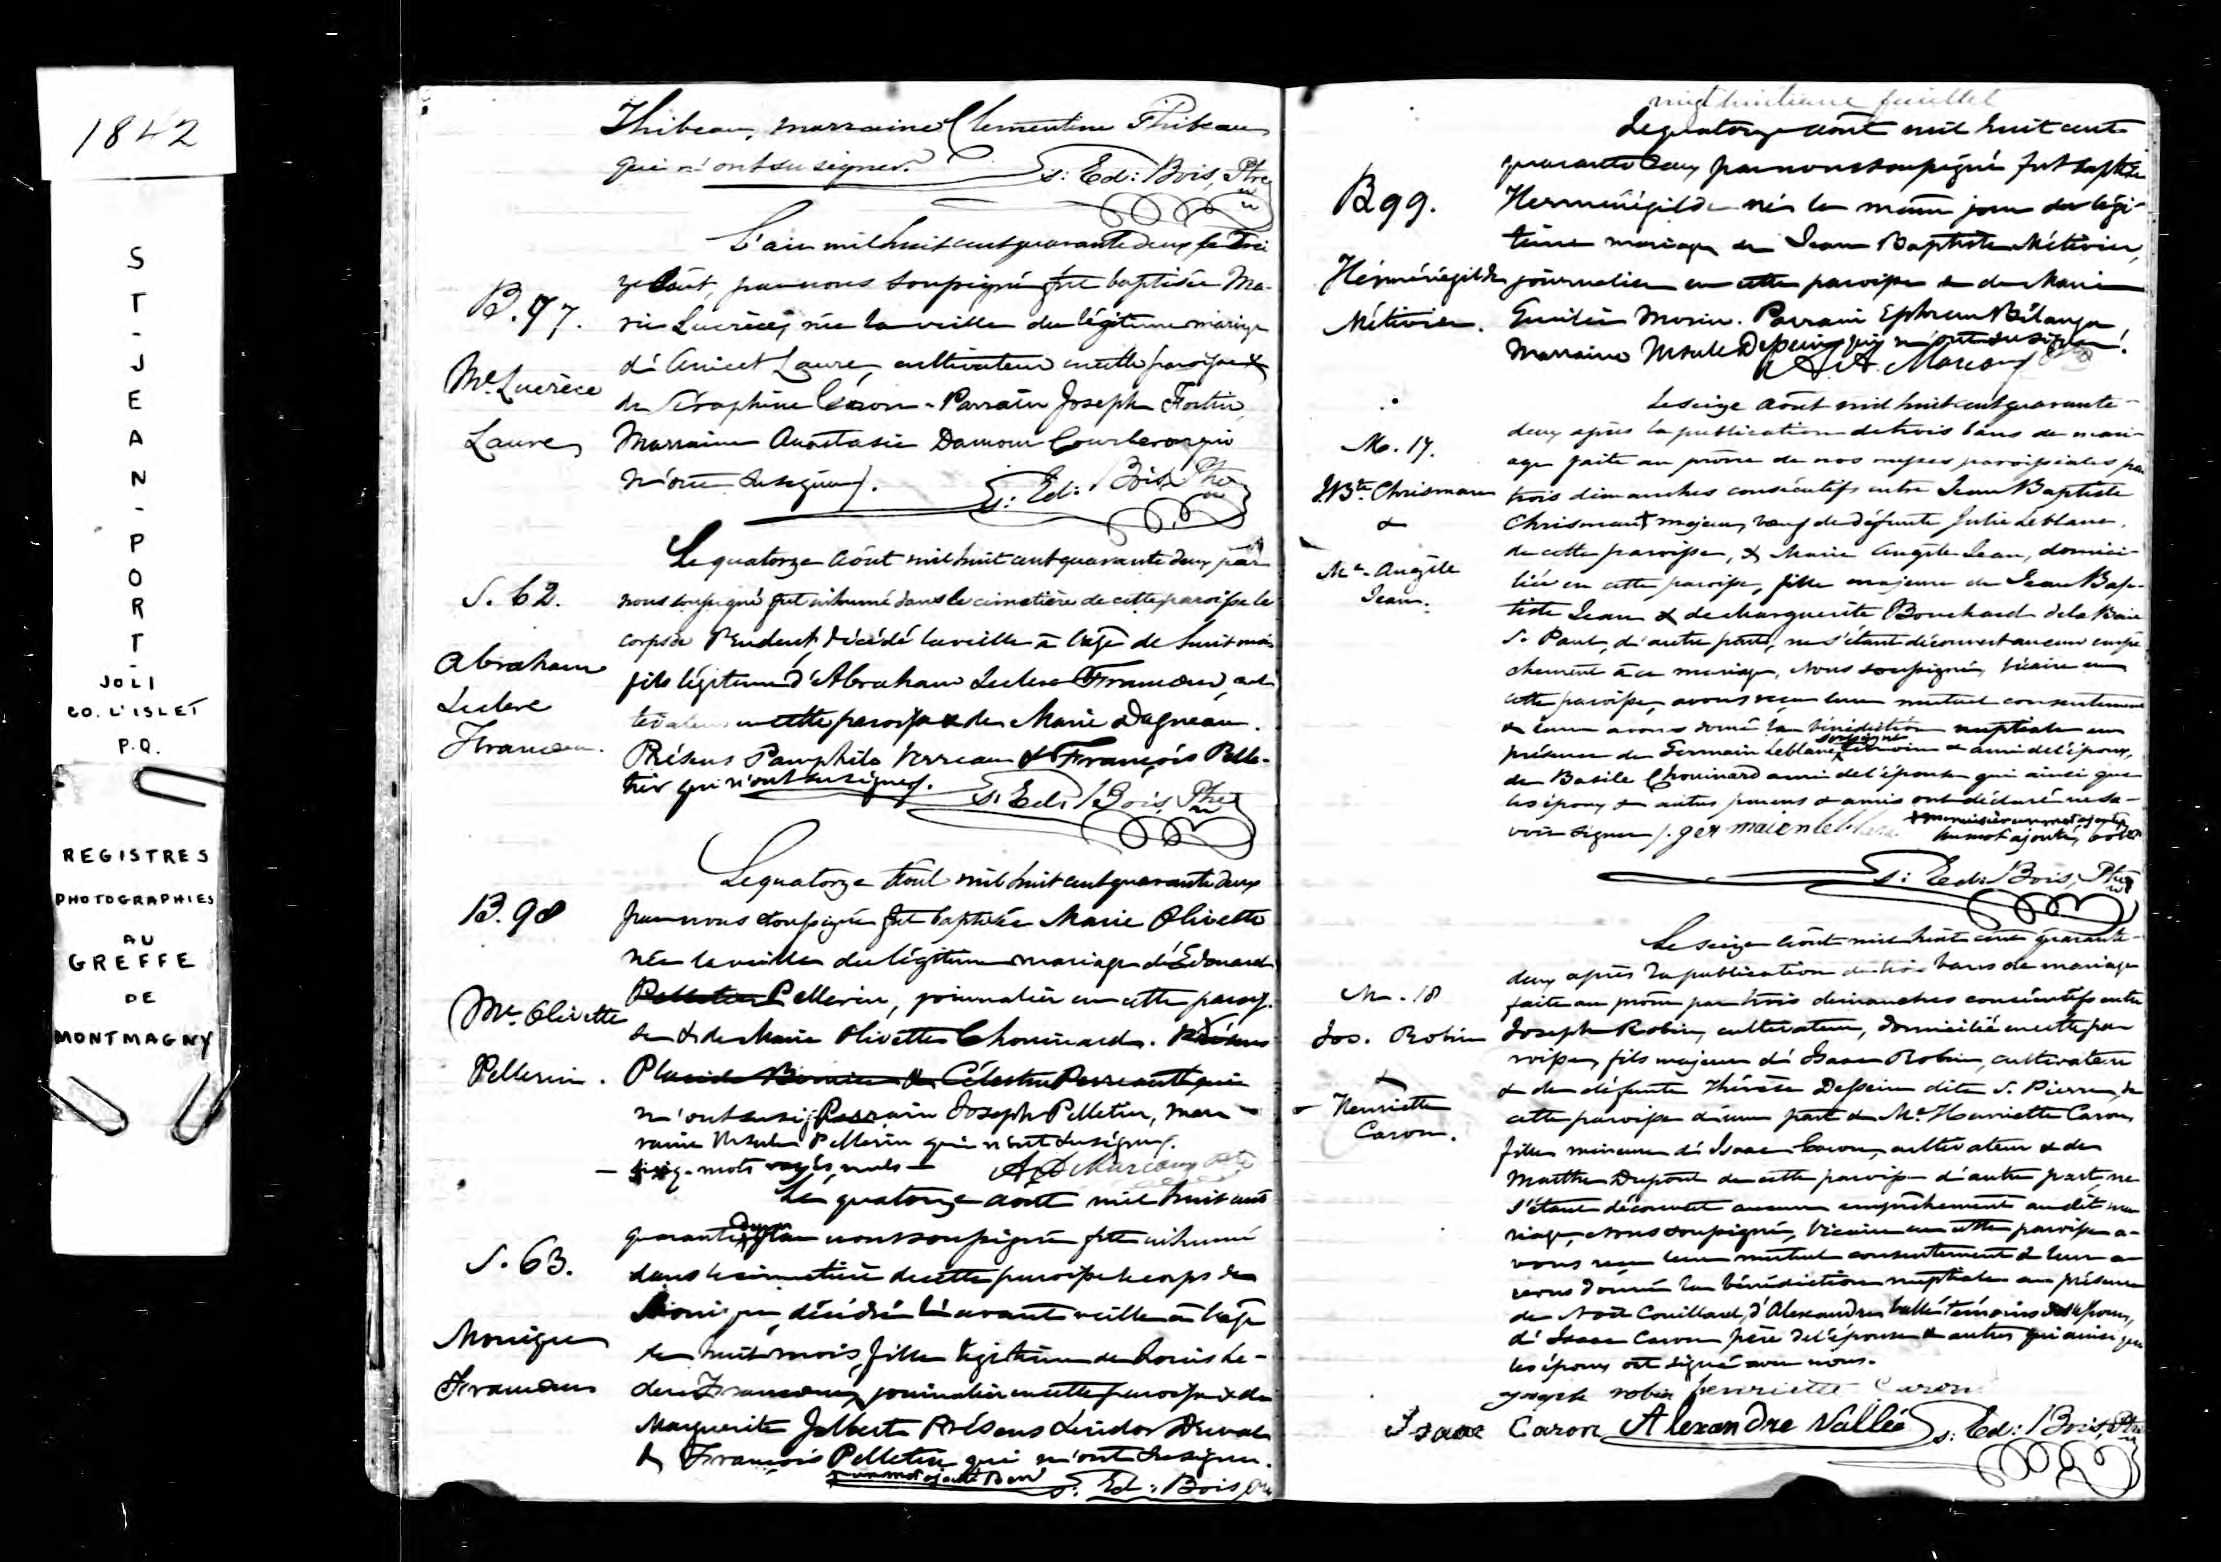 1842
ST-JEAN-PORT-
JOLI
CO. L'ISLET
P.Q.
REGISTRES
PHOTOGRAPHIES
AU
GREFFE
DE
MONTMAGNY
Thibeau, marraine Clementine Thibeau
qui n'ont su signer. Ls: Ed: Bois, Ptre
B. 97.
Me. Lucrèce
Laure
L'an mil huit cent quarante deux le trei
ze Août, par nous soussigné fut baptisée Ma-
rie Lucrèce, née la veille du légitime mariage
d'Anicet Laure, cultivateur en cette paroisse &
de Séraphine Caron. Parrain Joseph Fortin,
Marraine Anastasie Damour Courberon qui
n'ont su signer.
Ls: Ed: Bois, Ptre
S. 62.
Abraham
Leclerc
Francoeur.
Le quatorze Août mil huit cent quarante deux par
nous soussigné fut inhumé dans le cimetière de cette paroisse le
corps de décédé la veille à l'âge de huit mois
fils légitime d'Abraham Leclerc Francoeur, cul
tivateur en cette paroisse & de Marie Dagneau.
Présens Pamphile Verreau & François Pelle-
tier qui n'ont su signer. Ls: Ed: Bois, Ptre
B. 98
Me. Olivette
Pellerin.
Le quatorze Août mil huit cent quarante deux
par nous soussigné fut baptisée Marie Olivette
née la veille du légitime mariage d'Edouard
Pelletier Pellerin, journalier en cette parois-
se & de Marie Olivette Chouinard. Présens
Placide & Célestin qui
n'ont su si Parrain Joseph Pelletier, mar
raine Ursule Pellerin qui n'ont su signer.
mots rayés nuls
Le quatorze aout mil huit cent
S. 63.
Monique
Francoeur
quarante deux par nous soussigné fut inhumé
dans le cimetière de cette paroisse le corps de
Monique, décédée l'avant veille à l'âge
de huit mois, fille légitime de Louis Le-
clerc Francoeur, journalier en cette paroisse & de
Marguerite Jalbert. Présens Duval
& François Pelletier qui n'ont su signer.
un mot ajouté Bon Ls: Ed: Bois, Ptre
vingt huitieme juillet
B 99.
Herménégilde
Métivier.
Le quatorze août mil huit cent
quarante deux par nous soussigné fut baptisé
Herménégilde né le même jour du légi-
time mariage de Jean Baptiste Métivier,
journalier en cette paroisse & de Marie
Morin. Parrain Ephrem Bélanger,
Marraine Ursule Dessein qui n'ont su signer.
M. 17.
J. Bte. Chrisman
&
Me. Angèle
Jean.
Le seize Août mil huit cent quarante
deux après la publication de trois bans de mari-
age faite au prône de nos messes paroissiales par
trois dimanches consécutifs entre Jean Baptiste
Chrismant majeur, veuf de défunte Julie Leblanc.
de cette paroisse, & Marie Angèle Jean, domici-
liée en cette paroisse, fille majeure de Jean Bap-
tiste Jean & de Marguerite Bouchard de la Baie
S. Paul, d'autre part, ne s'étant découvert aucun empê
chement à ce mariage, Nous soussigné, Vicaire en
cette paroisse, avons reçu leur mutuel consentement
& leur avons donné la bénédiction nuptiale en
présence de Germain Leblanc soussigné témoin & ami de l'époux,
de Basile Chouinard ami de l'épouse qui ainsi que
les époux & autres parens & amis ont déclaré ne sa-
voir signer. germain leblanc
un mot ajouté, bon
Ls: Ed: Bois, Ptre
M. 18
Jos. Robin
&
Henriette
Caron.
Le seize Août mil huit cent quarante
deux après la publication de trois bans de mariage
faite au prône par trois dimanches consécutifs entre
Joseph Robin, cultivateur, domicilié en cette pa
roisse, fils majeur d'Isaac Robin, cultivateur
& de défunte Thérèse Dessein dite S. Pierre, de
cette paroisse d'une part & Me. Henriette Caron
fille mineure d'Isaac Caron, cultivateur & de
Marthe Dupont de cette paroisse d'autre part ne
s'étant découvert aucun empêchement au dit ma
riage, Nous soussigné, Vicaire en cette paroisse a-
vons reçu leur mutuel consentement & leur a
vons donné la bénédiction nuptiale en présence
de Noël Couillard, d'Alexandre Vallée témoins de l'époux,
d'Isaac Caron père de l'épouse & autres qui ainsi que
les époux ont signé avec nous.
joseph robin henriette Caron
Isaac Caron Alexandre Vallée Ls: Ed: Bois, Ptre